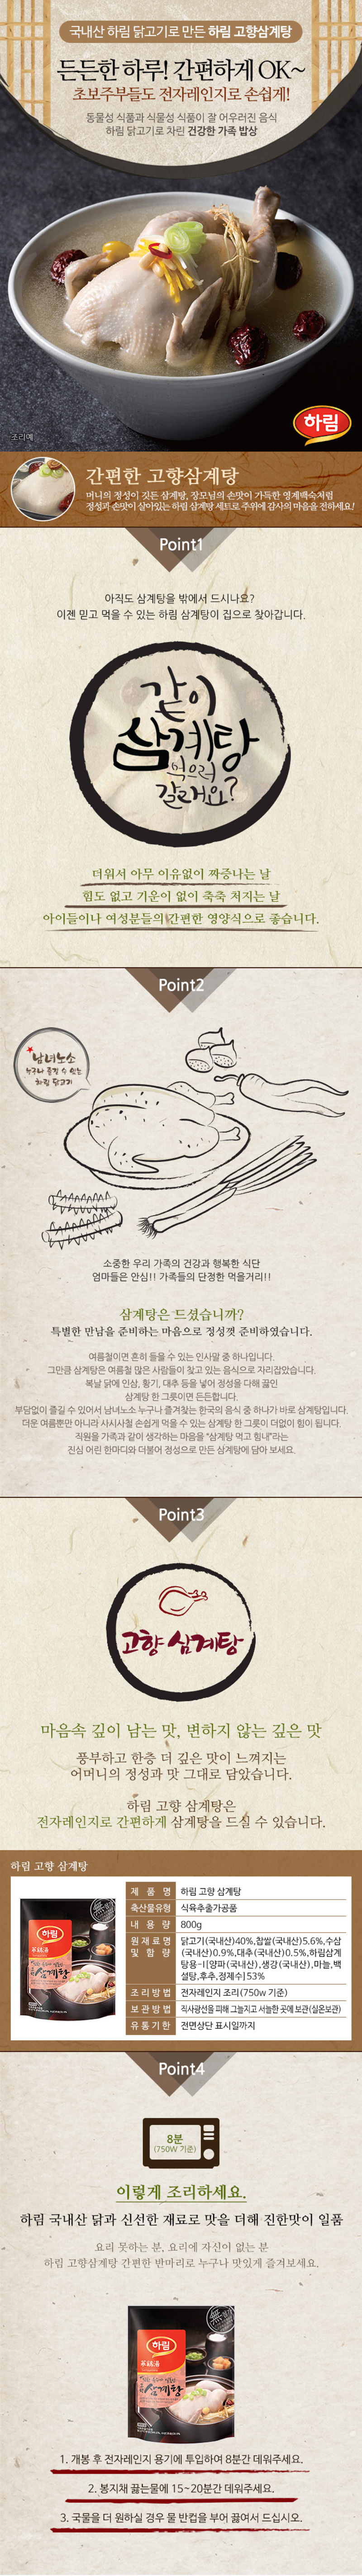 국내산 하림 닭고기로 만든 하림 고향삼계탕
든든한 하루! 간편하게 OK~
초보주부들도 전자레인지로 손쉽게!
동물성 식품과 식물성 식품이 잘 어우러진 음식
하림 닭고기로 차린 건강한 가족 밥상
하림
조리예
간편한 고향삼계탕
머니의 정성이 깃든 삼계탕, 장모님의 손맛이 가득한 영계백숙처럼
정성과 손맛이 살아있는 하림 삼계탕 세트로 주위에 감사의 마음을 전하세요!
Point1
아직도 삼계탕을 밖에서 드시나요?
이젠 믿고 먹을 수 있는 하림 삼계탕이 집으로 찾아갑니다.
같이
삼계탕
먹으러
갈래요?
더워서 아무 이유없이 짜증나는 날
힘도 없고 기운이 없이 축축 쳐지는 날
아이들이나 여성분들의 간편한 영양식으로 좋습니다.
Point2
남녀노소
누구나 즐길 수 있는
하림 닭고기
소중한 우리 가족의 건강과 행복한 식단
엄마들은 안심!! 가족들의 단정한 먹을거리!!
삼계탕은 드셨습니까?
특별한 만남을 준비하는 마음으로 정성껏 준비하였습니다.
여름철이면 흔히 들을 수 있는 인사말 중 하나입니다.
그만큼 삼계탕은 여름철 많은 사람들이 찾고 있는 음식으로 자리잡았습니다.
복날 닭에 인삼, 황기, 대추 등을 넣어 정성을 다해 끓인
삼계탕 한 그릇이면 든든합니다.
부담없이 즐길 수 있어서 남녀노소 누구나 즐겨찾는 한국의 음식 중 하나가 바로 삼계탕입니다.
더운 여름뿐만 아니라 사시사철 손쉽게 먹을 수 있는 삼계탕 한 그릇이 더없이 힘이 됩니다.
직원을 가족과 같이 생각하는 마음을 "삼계탕 먹고 힘내"라는
진심 어린 한마디와 더불어 정성으로 만든 삼계탕에 담아 보세요.
Point3
고향 삼계탕
마음속 깊이 남는 맛, 변하지 않는 깊은 맛
풍부하고 한층 더 깊은 맛이 느껴지는
어머니의 정성과 맛 그대로 담았습니다.
하림 고향 삼계탕은
전자레인지로 간편하게 삼계탕을 드실 수 있습니다.
하림 고향 삼계탕
하림
삼계탕
제 품 명 하림 고향 삼계탕
축산물유형 식육추출가공품
내 용 량 800g
원 재 료 명 닭고기(국내산)40%,찹쌀(국내산)5.6%,수삼
및 함 량 (국내산)0.9%,대추(국내산)0.5%,하림삼계
탕용-I[양파(국내산),생강(국내산),마늘,백
설탕,후추,정제수]53%
조 리 방 법 전자레인지 조리(750w 기준)
보 관 방 법 직사광선을 피해 그늘지고 서늘한 곳에 보관(실온보관)
유 통 기 한 전면상단 표시일까지
Point4
8분
(750W 기준)
이렇게 조리하세요.
하림 국내산 닭과 신선한 재료로 맛을 더해 진한맛이 일품
요리 못하는 분, 요리에 자신이 없는 분
하림 고향삼계탕 간편한 반마리로 누구나 맛있게 즐겨보세요.
하림
삼계탕
1. 개봉 후 전자레인지 용기에 투입하여 8분간 데워주세요.
2. 봉지채 끓는물에 15~20분간 데워주세요.
3. 국물을 더 원하실 경우 물 반컵을 부어 끓여서 드십시오.